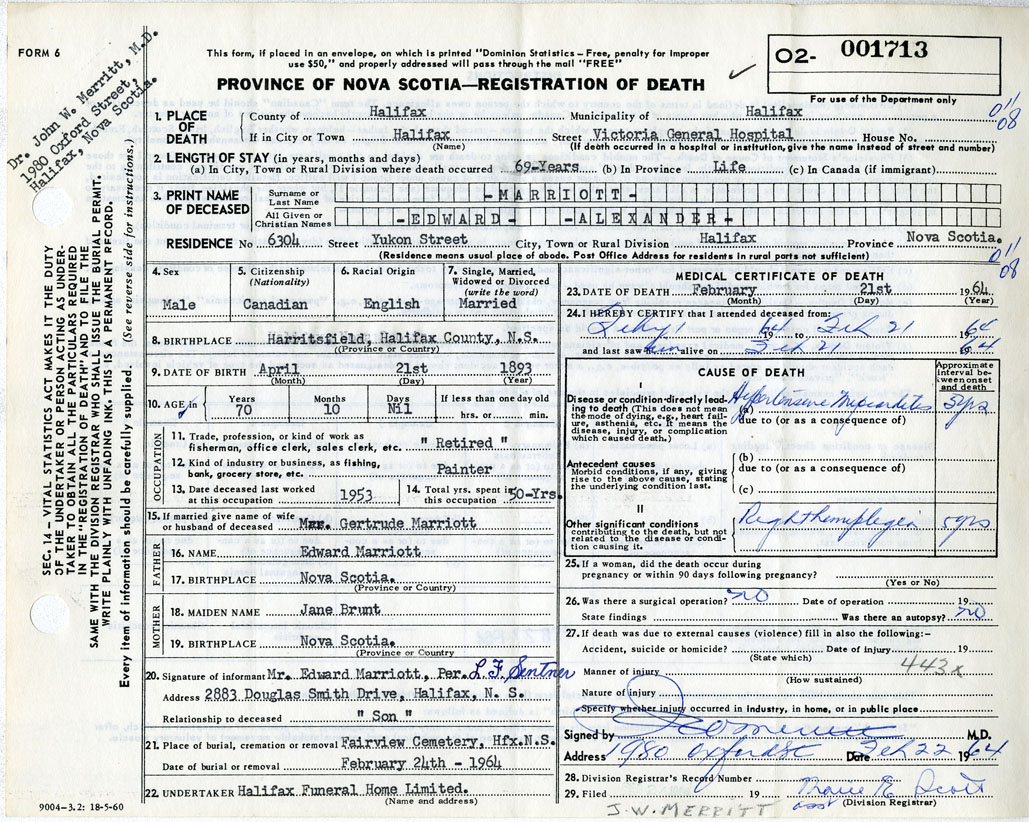 FORM 6
Dr. John W. Merritt, M.D.
1980 Oxford Street,
Halifax, Nova Scotia.
This form, if placed in an envelope, on which is printed "Dominion Statistics – Free, penalty for improper
use $50," and properly addressed will pass through the mail "FREE"
PROVINCE OF NOVA SCOTIA—REGISTRATION OF DEATH
O2- 001713
For use of the Department only
011/08
1. PLACE OF DEATH County of Halifax Municipality of Halifax
If in City or Town Halifax Street Victoria General Hospital House No.
(Name) (If death occurred in a hospital or institution, give the name instead of street and number)
2. LENGTH OF STAY (in years, months and days)
(a) In City, Town or Rural Division where death occurred 69-Years (b) In Province Life (c) In Canada (if immigrant)
3. PRINT NAME OF DECEASED
Surname or Last Name -MARRIOTT-
All Given or Christian Names -EDWARD- -ALEXANDER-
RESIDENCE No 6304 Street Yukon Street City, Town or Rural Division Halifax Province Nova Scotia.
(Residence means usual place of abode. Post Office Address for residents in rural parts not sufficient)
011/08
4. Sex Male
5. Citizenship (Nationality) Canadian
6. Racial Origin English
7. Single, Married, Widowed or Divorced (write the word) Married
8. BIRTHPLACE Harritsfield, Halifax County, N.S.
(Province or Country)
9. DATE OF BIRTH April 21st 1893
(Month) (Day) (Year)
10. AGE in Years 70 Months 10 Days Nil If less than one day old hrs. or min.
OCCUPATION
11. Trade, profession, or kind of work as fisherman, office clerk, sales clerk, etc. " Retired "
12. Kind of industry or business, as fishing, bank, grocery store, etc. Painter
13. Date deceased last worked at this occupation 1953
14. Total yrs. spent in this occupation 50-Yrs.
15. If married give name of wife or husband of deceased Mrs. Gertrude Marriott
FATHER
16. NAME Edward Marriott
17. BIRTHPLACE Nova Scotia.
(Province or Country)
MOTHER
18. MAIDEN NAME Jane Brunt
19. BIRTHPLACE Nova Scotia.
(Province or Country
20. Signature of informant Mr. Edward Marriott, Per. L F Sentner
Address 2883 Douglas Smith Drive, Halifax, N. S.
Relationship to deceased " Son "
21. Place of burial, cremation or removal Fairview Cemetery, Hfx.N.S.
Date of burial or removal February 24th - 1964
22. UNDERTAKER Halifax Funeral Home Limited.
(Name and address)
9004-3.2: 18-5-60
MEDICAL CERTIFICATE OF DEATH
23. DATE OF DEATH February 21st 1964
(Month) (Day) (Year)
24. I HEREBY CERTIFY that I attended deceased from:
1964 to Feb 21 1964
and last saw him alive on Feb 21 1964
CAUSE OF DEATH
Approximate interval between onset and death
I
Disease or condition directly leading to death (This does not mean the mode of dying, e.g., heart failure, asthenia, etc. It means the disease, injury, or complication which caused death.)
(a) Hypertensive Myocarditis 5yrs
due to (or as a consequence of)
Antecedent causes
Morbid conditions, if any, giving rise to the above cause, stating the underlying condition last.
(b)
due to (or as a consequence of)
(c)
II
Other significant conditions contributing to the death, but not related to the disease or condition causing it.
Right hemiplegia 5yrs
25. If a woman, did the death occur during pregnancy or within 90 days following pregnancy?
(Yes or No)
26. Was there a surgical operation? no Date of operation 19
State findings Was there an autopsy? no
27. If death was due to external causes (violence) fill in also the following:–
Accident, suicide or homicide? Date of injury 19
(State which)
443x
Manner of injury
(How sustained)
Nature of injury
Specify whether injury occurred in Industry, in home, or in public place
Signed by M.D.
Address 1980 Oxford St Date Feb 22 1964
28. Division Registrar's Record Number
29. Filed 19 Scott
asst (Division Registrar)
J.W. MERRITT
SEC. 14 – VITAL STATISTICS ACT MAKES IT THE DUTY
OF THE UNDERTAKER OR PERSON ACTING AS UNDER-
TAKER TO OBTAIN ALL THE PARTICULARS REQUIRED
IN THE "REGISTRATION OF DEATH" AND TO FILE THE
SAME WITH THE DIVISION REGISTRAR WHO SHALL ISSUE THE BURIAL PERMIT.
WRITE PLAINLY WITH UNFADING INK. THIS IS A PERMANENT RECORD.
Every item of information should be carefully supplied. (See reverse side for instructions.)